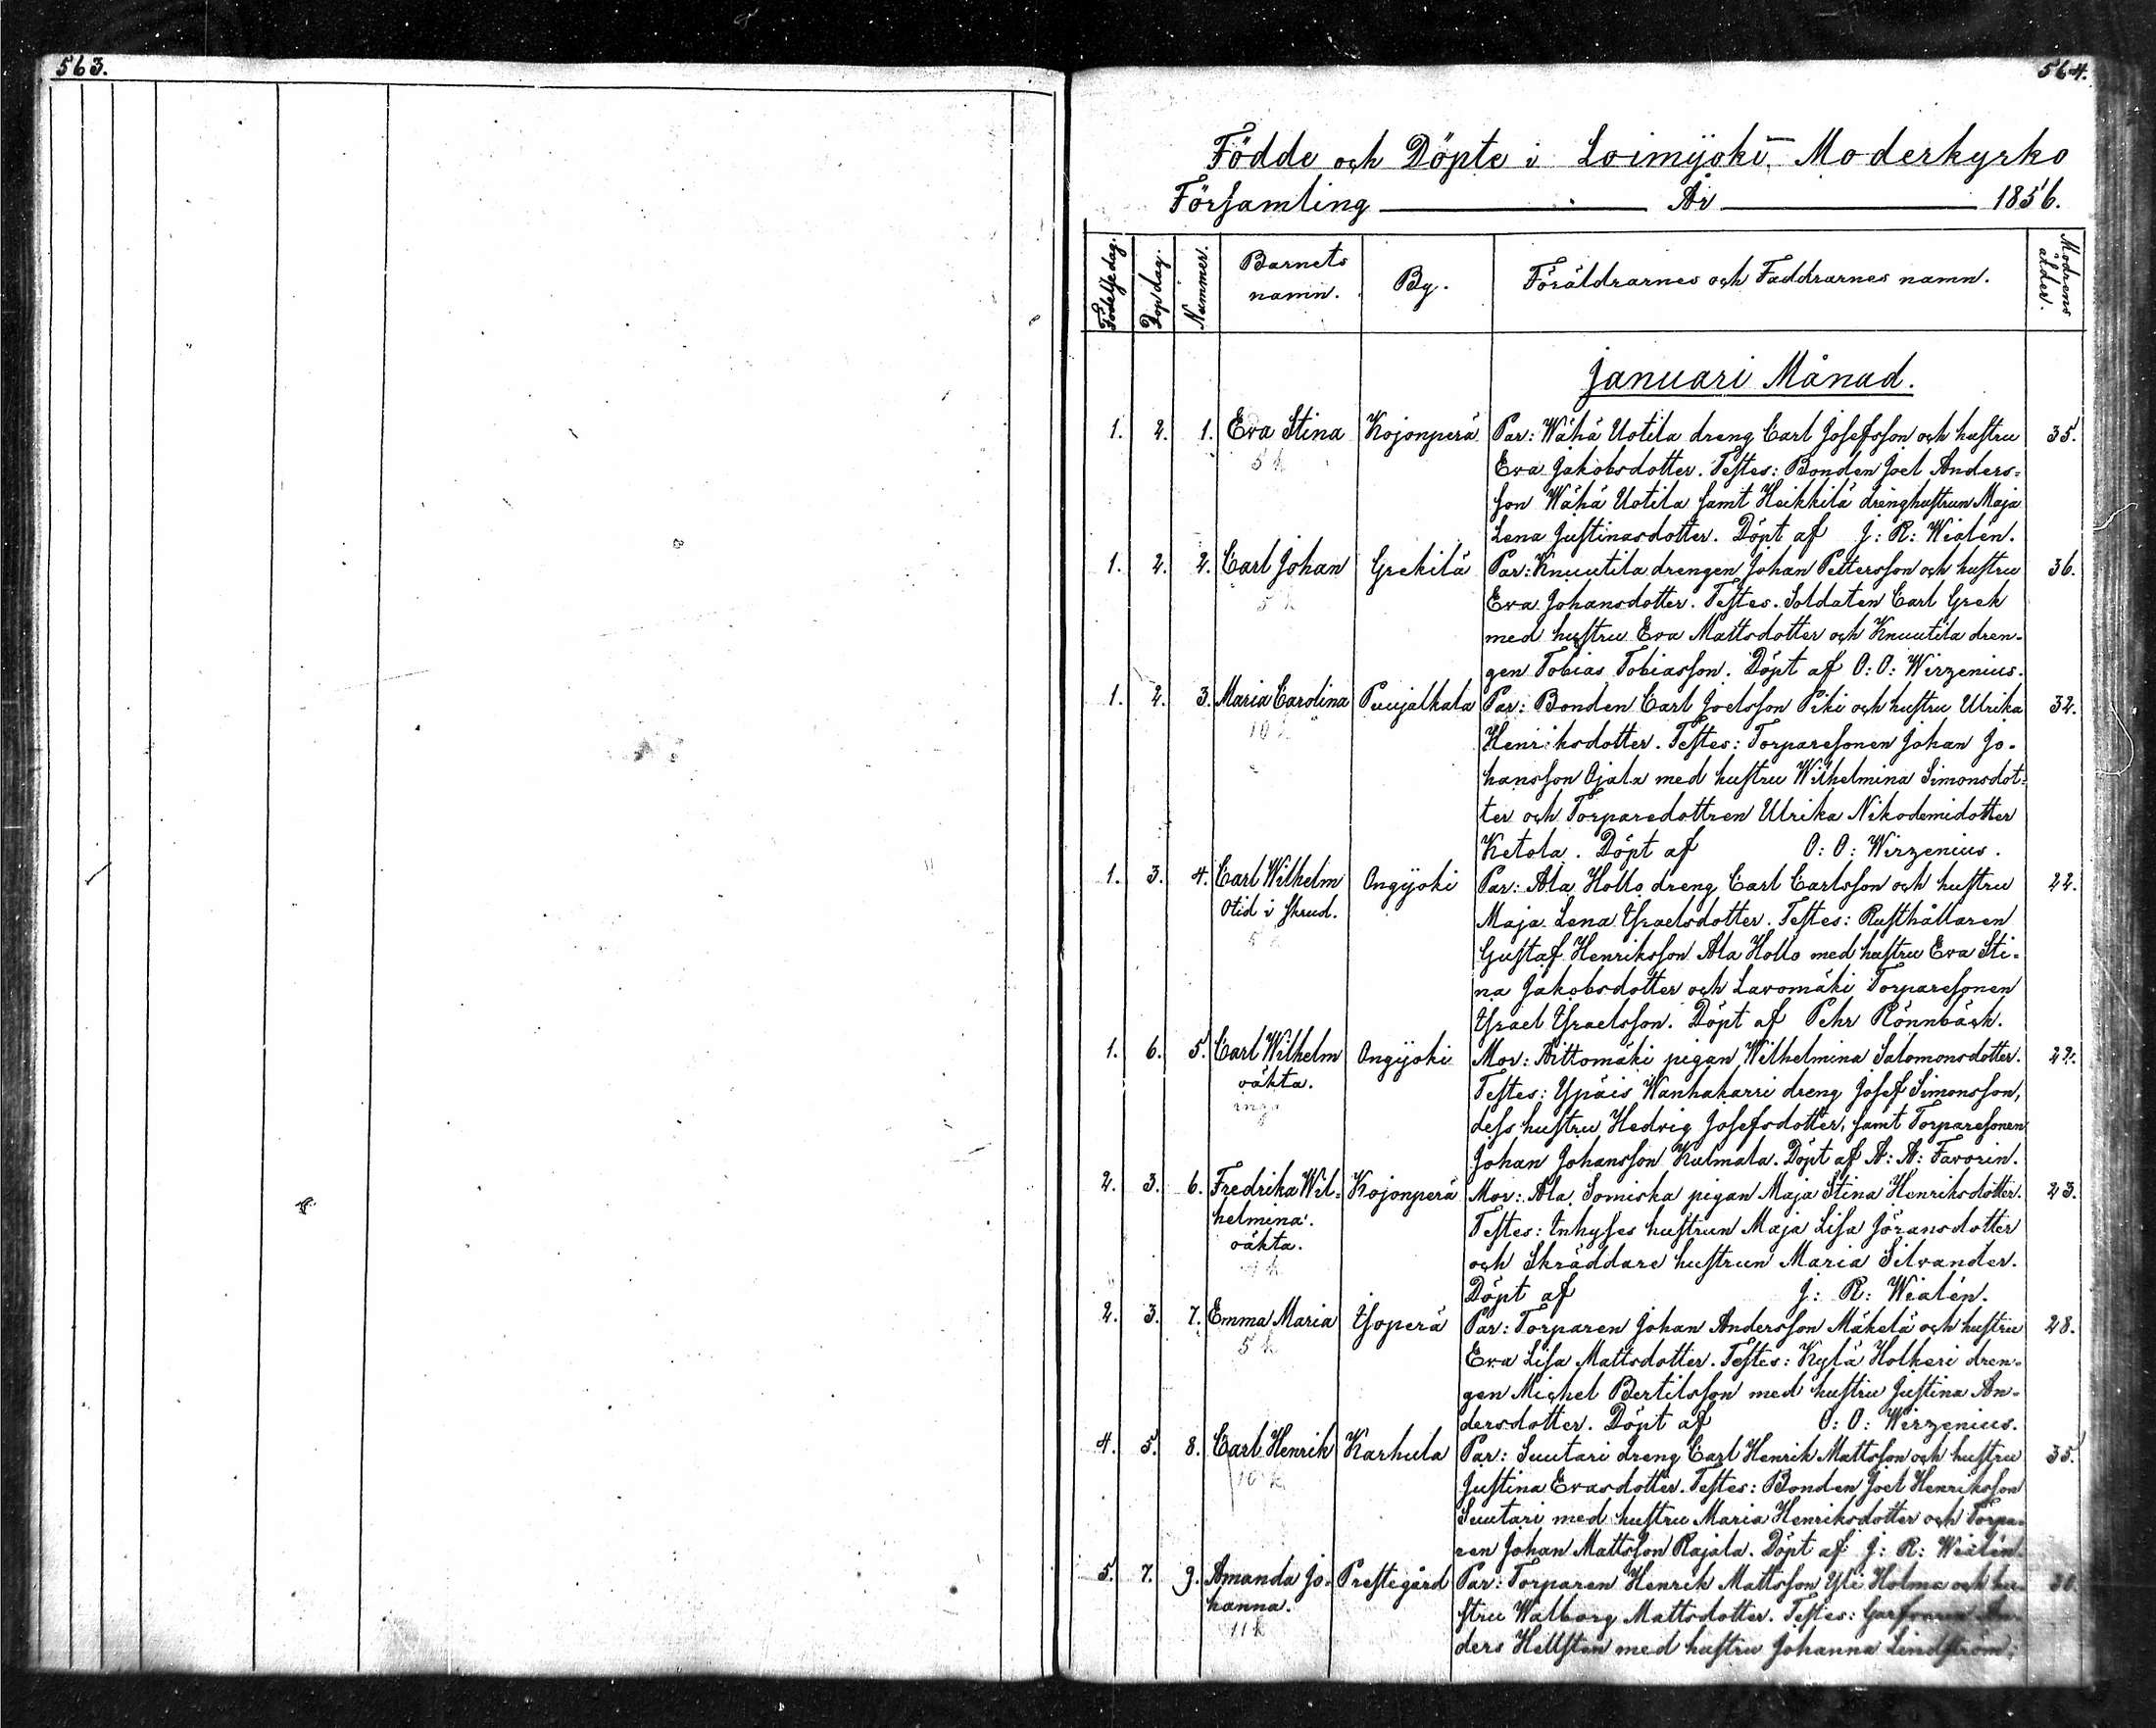 563.
564.
Födde och Döpte i Loimijoki Moderkyrko
Församling År 1856.
Födelsedag. Dopdag. Nummer. Barnets namn. By. Föräldrarnes och Faddrarnes namn. Modrens ålder.
Januari Månad.
1. 2. 1. Eva Stina Kojonperä Par: Wähä Uotila dreng Carl Josefsson och hustru 35.
5 k Eva Jakobsdotter. Testes: Bonden Joel Anders-
son Wähä Uotila samt Heikkilä drenghustrun Maja
Lena Justinasdotter. Döpt af J: R: Wialén.
1. 2. 2. Carl Johan Grekilä Par: Knuutila drengen Johan Pettersson och hustru 36.
5 k Eva Johansdotter. Testes. Soldaten Carl Grek
med hustru Eva Mattsdotter och Knuutila dren-
gen Tobias Tobiasson. Döpt af O: O: Wirzenius.
1. 2. 3. Maria Carolina Puujalkala Par: Bonden Carl Joelsson Piki och hustru Ulrika 32.
10 k Henriksdotter. Testes: Torparesonen Johan Jo-
hansson Ojala med hustru Wilhelmina Simonsdot-
ter och Torparedottren Ulrika Nikodemidotter
Ketola. Döpt af O: O: Wirzenius.
1. 3. 4. Carl Wilhelm Ongijoki Par: Ala Hollo dreng Carl Carlsson och hustru 22.
Otid i skrud. Maja Lena Israelsdotter. Testes: Rusthållaren
5 k Gustaf Henriksson Ala Hollo med hustru Eva Sti-
na Jakobsdotter och Lavomäki Torparesonen
Israel Israelsson. Döpt af Pehr Rönnbäck.
1. 6. 5. Carl Wilhelm Ongijoki Mor: Aittomäki pigan Wilhelmina Salomonsdotter. 22.
oäkta. Testes: Ypäis Wanhakarri dreng Josef Simonsson,
inga dess hustru Hedvig Josefsdotter, samt Torparesonen
Johan Johansson Kulmala. Döpt af A: A: Favorin.
2. 3. 6. Fredrika Wil- Kojonperä Mor: Ala Somiska pigan Maja Stina Henriksdotter. 23.
helmina. Testes: Inhyses hustrun Maja Lisa Jöransdotter
oäkta. och Skräddare hustrun Maria Silvander.
Döpt af J: R: Wialén.
2. 3. 7. Emma Maria Isoperä Par: Torparen Johan Andersson Mäkelä och hustru 28.
5 k Eva Lisa Mattsdotter. Testes: Kylä Holkeri dren-
gen Michel Bertilsson med hustru Justina An-
dersdotter. Döpt af O: O: Wirzenius.
4. 5. 8. Carl Henrik Karhula Par: Suutari dreng Carl Henrik Mattsson och hustru 35.
10 k Justina Evasdotter. Testes: Bonden Joel Henriksson
Suutari med hustru Maria Henriksdotter och Torpa-
ren Johan Mattsson Rajala. Döpt af J: R: Wialén.
5. 7. 9. Amanda Jo- Prestegård Par: Torparen Henrik Mattsson Yli Holma och hu-
hanna. stru Walborg Mattsdotter. Testes: Garfvaren An-
11 k ders Hellsten med hustru Johanna Lindström,